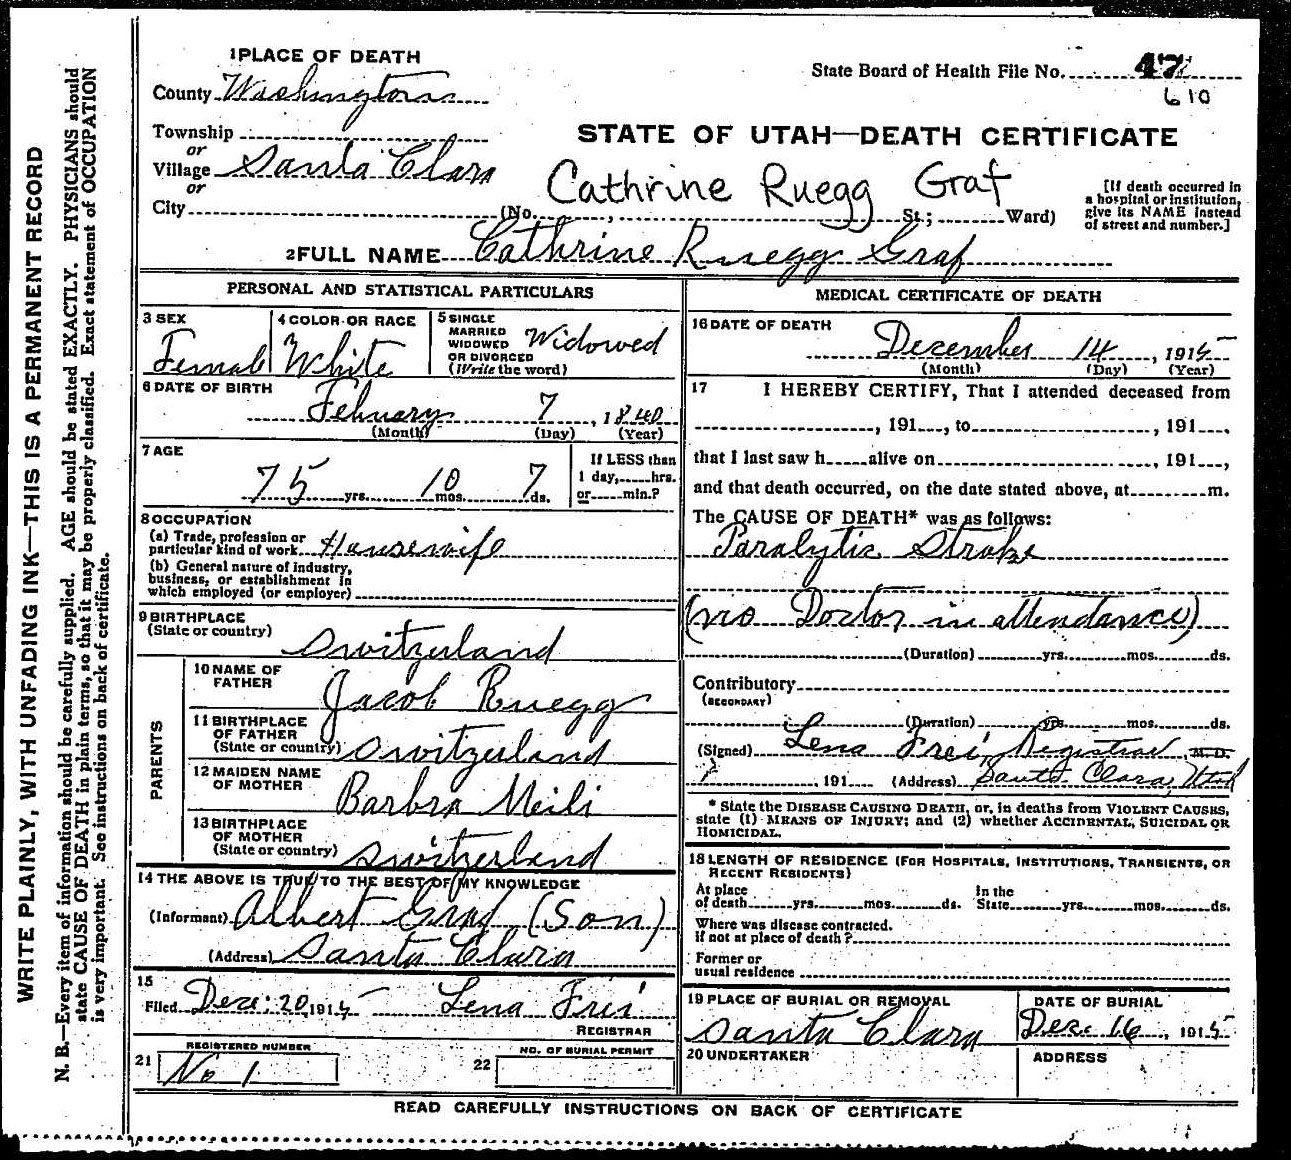 WRITE PLAINLY, WITH UNFADING INK—THIS IS A PERMANENT RECORD
N. B.—Every item of information should be carefully supplied. AGE should be stated EXACTLY. PHYSICIANS should
state CAUSE OF DEATH in plain terms, so that it may be properly classified. Exact statement of OCCUPATION
is very important. See instructions on back of certificate.
1 PLACE OF DEATH
State Board of Health File No. 47
610
County Washington
Township
or
Village Santa Clara
or
City
STATE OF UTAH—DEATH CERTIFICATE
Cathrine Ruegg Graf
(No. , St.; Ward)
[If death occurred in
a hospital or institution,
give its NAME instead
of street and number.]
2 FULL NAME Cathrine Ruegg Graf
PERSONAL AND STATISTICAL PARTICULARS
3 SEX
Female
4 COLOR OR RACE
White
5 SINGLE
MARRIED
WIDOWED
OR DIVORCED
(Write the word)
Widowed
6 DATE OF BIRTH
February 7, 1840
(Month) (Day) (Year)
7 AGE
75 yrs. 10 mos. 7 ds.
If LESS than
1 day, hrs.
or min.?
8 OCCUPATION
(a) Trade, profession or
particular kind of work Housewife
(b) General nature of industry,
business, or establishment in
which employed (or employer)
9 BIRTHPLACE
(State or country)
Switzerland
PARENTS
10 NAME OF
FATHER
Jacob Ruegg
11 BIRTHPLACE
OF FATHER
(State or country) Switzerland
12 MAIDEN NAME
OF MOTHER
Barbra Meili
13 BIRTHPLACE
OF MOTHER
(State or country) Switzerland
14 THE ABOVE IS TRUE TO THE BEST OF MY KNOWLEDGE
(Informant) Albert Graf (Son)
(Address) Santa Clara
15
Filed Dec. 20, 1915 Lena Frei
REGISTRAR
21
REGISTERED NUMBER
No 1
22
NO. OF BURIAL PERMIT
MEDICAL CERTIFICATE OF DEATH
16 DATE OF DEATH
December 14, 1915
(Month) (Day) (Year)
17 I HEREBY CERTIFY, That I attended deceased from
, 191 , to , 191 ,
that I last saw h alive on , 191 ,
and that death occurred, on the date stated above, at m.
The CAUSE OF DEATH* was as follows:
Paralytic Stroke
(no Doctor in attendance)
(Duration) yrs. mos. ds.
Contributory
(SECONDARY)
(Duration) yrs. mos. ds.
(Signed) Lena Frei, Registrar M. D.
, 191 (Address) Santa Clara, Utah
* State the DISEASE CAUSING DEATH, or, in deaths from VIOLENT CAUSES,
state (1) MEANS OF INJURY; and (2) whether ACCIDENTAL, SUICIDAL OR
HOMICIDAL.
18 LENGTH OF RESIDENCE (FOR HOSPITALS, INSTITUTIONS, TRANSIENTS, OR
RECENT RESIDENTS)
At place
of death yrs. mos. ds.
In the
State yrs. mos. ds.
Where was disease contracted.
if not at place of death?
Former or
usual residence
19 PLACE OF BURIAL OR REMOVAL
Santa Clara
DATE OF BURIAL
Dec. 16, 1915
20 UNDERTAKER
ADDRESS
READ CAREFULLY INSTRUCTIONS ON BACK OF CERTIFICATE